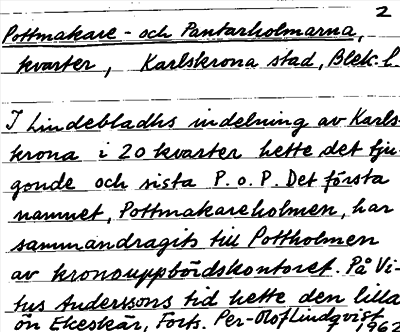 2
Pottmakare- och Pantarholmarna,
kvarter, Karlskrona stad, Blek. l.
I Lindebladhs indelning av Karls-
krona i 20 kvarter hette det tju-
gonde och sista P. o. P. Det första
namnet, Pottmakareholmen, har
sammandragits till Pottholmen
av kronouppbördskontoret. På Vi-
tus Anderssons tid hette den lilla
ön Ekeskär, Forts. Per-Olof Lindqvist
1962